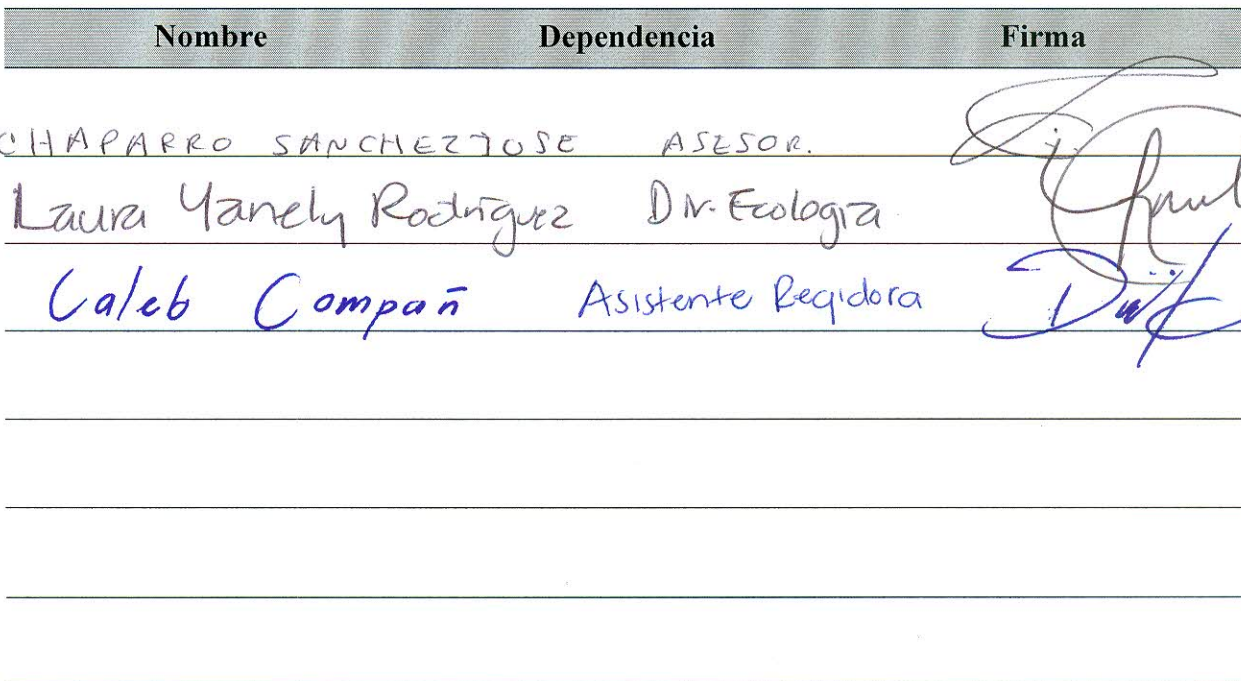 Nombre Dependencia Firma
CHAPARRO SANCHEZ JOSE ASESOR.
Laura Yanely Rodríguez Dir. Ecología
Caleb Compañ Asistente Regidora